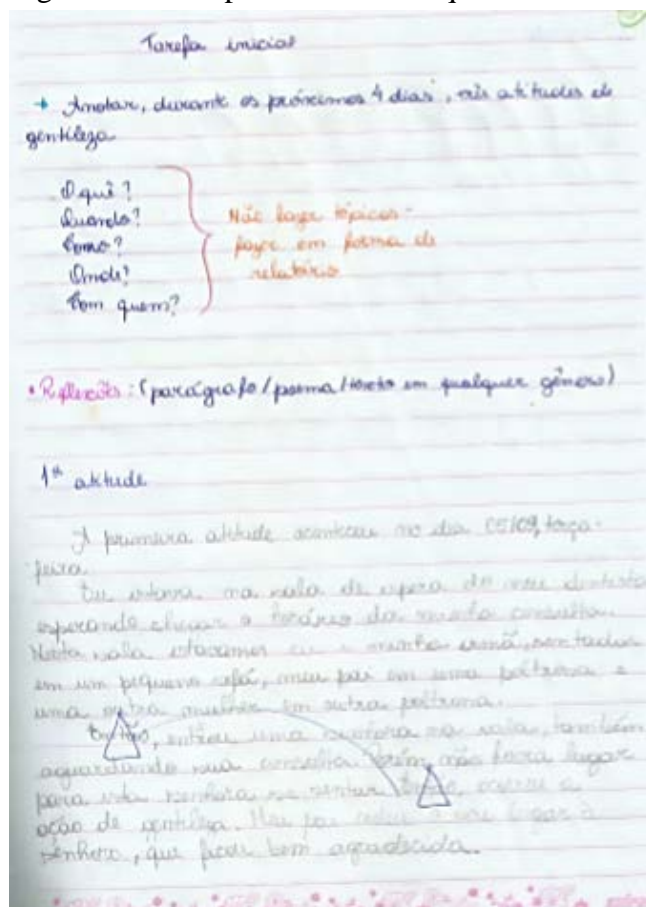 Tarefa inicial
→ Anotar, durante os próximos 4 dias, três atitudes de
gentileza
O quê?
Quando?
Como?
Onde?
Com quem?
Não fazer tópicos -
fazer em forma de
relatório
• Reflexões: (parágrafo/poema/texto em qualquer gênero)
1ª atitude
A primeira atitude aconteceu no dia 05/09, terça-
feira.
Eu estava na sala de espera do meu dentista
esperando chegar o horário da minha consulta.
Nesta sala estavamos eu e minha irmã, sentadas
em um pequeno sofá, meu pai em uma poltrona e
uma outra mulher em outra poltrona.
Então, entrou uma senhora na sala, também
aguardando sua consulta. Porém, não havia lugar
para esta senhora se sentar. Então, ocorre a
ação de gentileza. Meu pai cedeu o seu lugar à
senhora, que ficou bem agradecida.